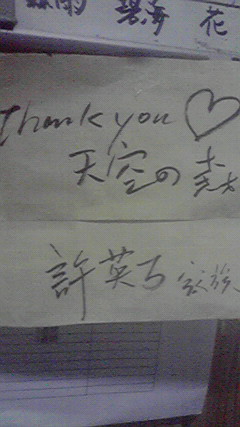 碧海 花
thank you ♡
天空の
許英
家族